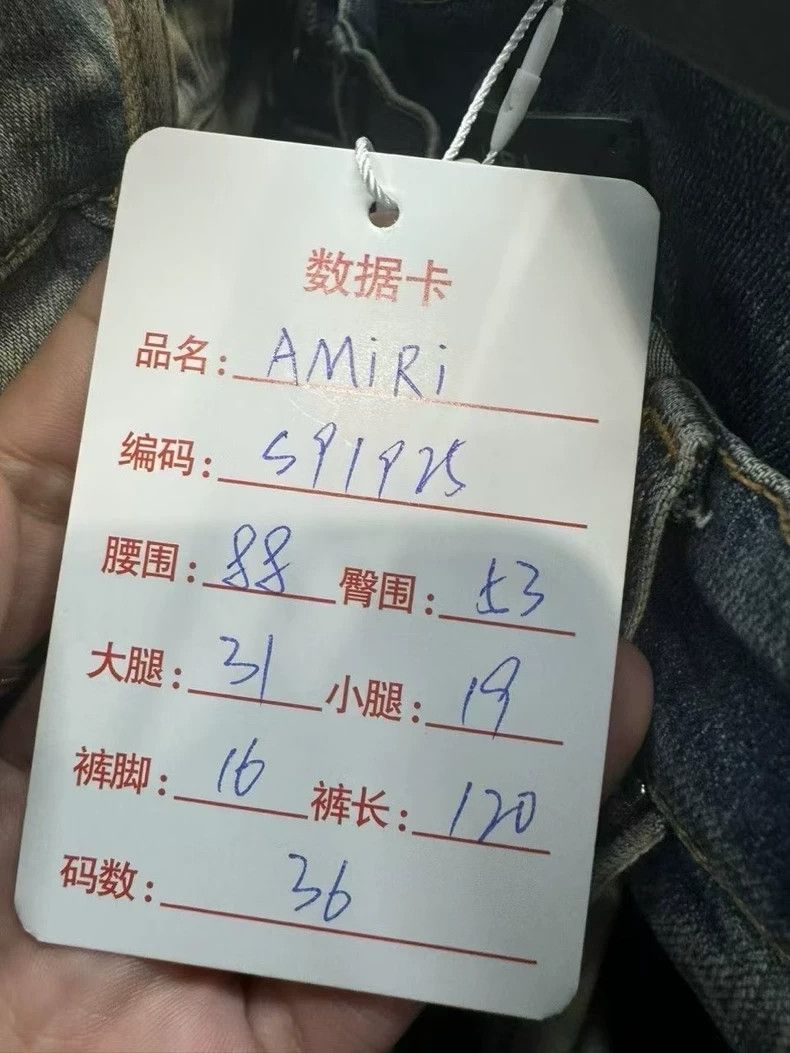 数据卡
品名: AMiRi
编码: S91925
腰围: 88 臀围: 53
大腿: 31 小腿: 19
裤脚: 16 裤长: 120
码数: 36